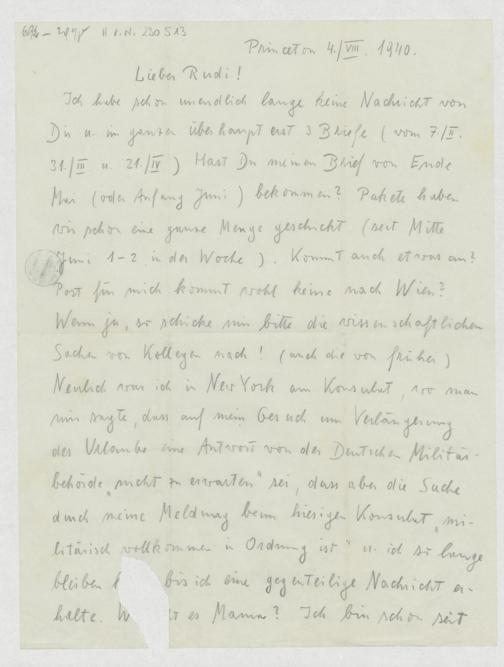 H.I.N. 230513
Princeton 4./VIII. 1940.
Lieber Rudi!
Ich habe schon unendlich lange keine Nachricht von
Dir u. im ganzen überhaupt erst 3 Briefe (vom 7./II.
31./III u. 21./IV) Hast Du meinen Brief von Ende
Mai (oder Anfang Juni) bekommen? Pakete haben
wir schon eine ganze Menge geschickt (seit Mitte
Juni 1-2 in der Woche). Kommt auch etwas an?
Post für mich kommt wohl keine nach Wien?
Wenn ja, so schicke mir bitte die wissenschaftlichen
Sachen von Kollegen nach! (auch die von früher)
Neulich war ich in New York am Konsulat, wo man
mir sagte, dass auf mein Gesuch um Verlängerung
des Urlaubs eine Antwort von der Deutschen Militär-
behörde „nicht zu erwarten" sei, dass aber die Sache
durch meine Meldung beim hiesigen Konsulat „mi-
litärisch vollkommen in Ordnung ist" u. ich so lange
bleiben bis ich eine gegenteilige Nachricht er-
halte. es Mama? Ich bin schon seit